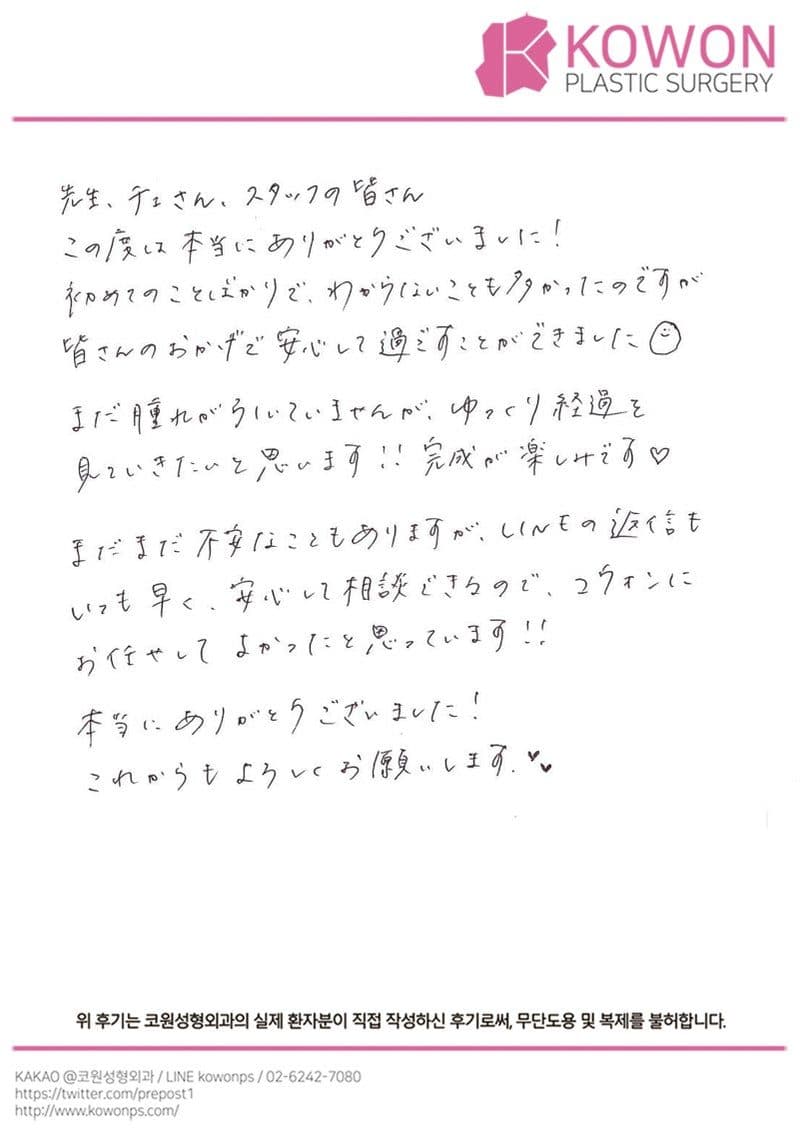 KOWON
PLASTIC SURGERY
先生、チェさん、スタッフの皆さん
この度は本当にありがとうございました!
初めてのことばかりで、わからないことも多かったのですが
皆さんのおかげで安心して過ごすことができました
まだ腫れがひいていませんが、ゆっくり経過を
見ていきたいと思います!! 完成が楽しみです♡
まだまだ不安なこともありますが、LINEの返信も
いつも早く、安心して相談できるので、コウォンに
お任せしてよかったと思っています!!
本当にありがとうございました!
これからもよろしくお願いします.♥♥
위 후기는 코원성형외과의 실제 환자분이 직접 작성하신 후기로써, 무단도용 및 복제를 불허합니다.
KAKAO @코원성형외과 / LINE kowonps / 02-6242-7080
https://twitter.com/prepost1
http://www.kowonps.com/